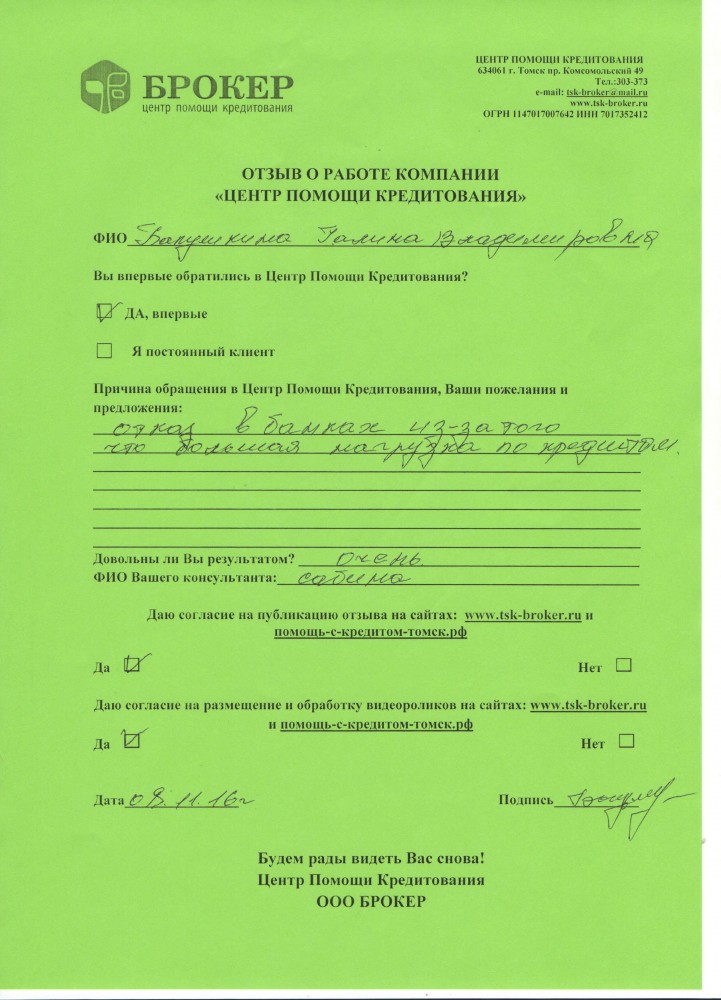 БРОКЕР
центр помощи кредитования
ЦЕНТР ПОМОЩИ КРЕДИТОВАНИЯ
634061 г. Томск пр. Комсомольский 49
Тел.:303-373
e-mail: tsk-broker@mail.ru
www.tsk-broker.ru
ОГРН 1147017007642 ИНН 7017352412
ОТЗЫВ О РАБОТЕ КОМПАНИИ
«ЦЕНТР ПОМОЩИ КРЕДИТОВАНИЯ»
ФИО Галина Владимировна
Вы впервые обратились в Центр Помощи Кредитования?
ДА, впервые
Я постоянный клиент
Причина обращения в Центр Помощи Кредитования, Ваши пожелания и
предложения:
отказ в банках из-за того
что большая нагрузка по кредитам.
Довольны ли Вы результатом? очень
ФИО Вашего консультанта: сабина
Даю согласие на публикацию отзыва на сайтах: www.tsk-broker.ru и
помощь-с-кредитом-томск.рф
Да Нет
Даю согласие на размещение и обработку видеороликов на сайтах: www.tsk-broker.ru
и помощь-с-кредитом-томск.рф
Да Нет
Дата 08.11.16г Подпись
Будем рады видеть Вас снова!
Центр Помощи Кредитования
ООО БРОКЕР